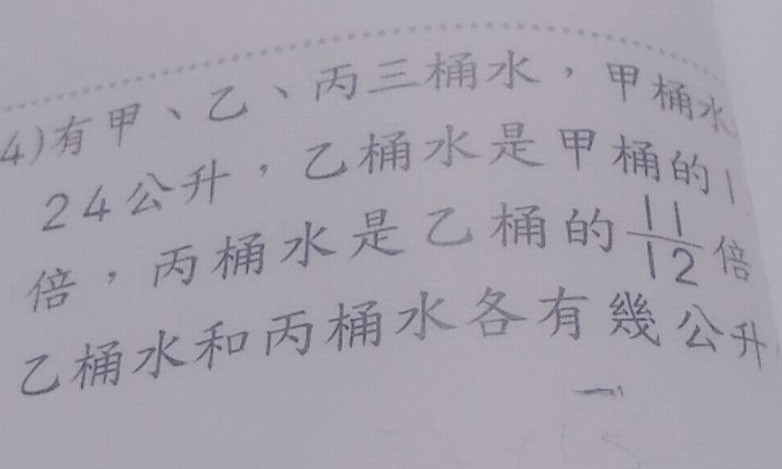 4)有甲、乙、丙三桶水，甲桶水
24公升，乙桶水是甲桶的1
倍，丙桶水是乙桶的11/12倍
乙桶水和丙桶水各有幾公升